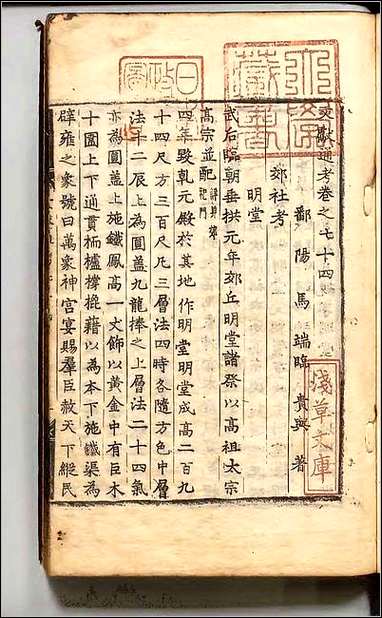 文獻通考卷之七十四
鄱陽馬端臨貴與著
郊社考
明堂
武后臨朝垂拱元年郊丘明堂諸祭以高祖太宗
高宗並配詳郊祀配門
四年毀乾元殿於其地作明堂明堂成高二百九
十四尺方三百尺凡三層法四時各隨方色中層
法十二辰上為圓盖九龍捧之上層法二十四氣
亦為圓盖上施鐵鳳高一丈飾以黃金中有巨木
十圍上下通貫栭櫨橕㮰藉以為本下施鐵渠為
辟雍之象號曰萬象神宮宴賜羣臣赦天下縱民
淺草文庫